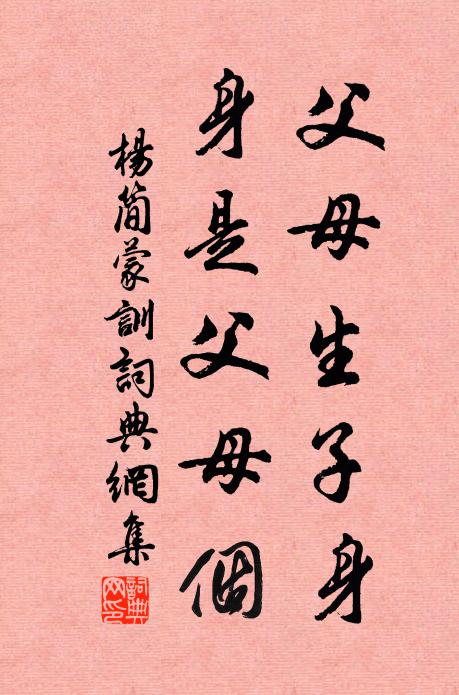 父母生子身
身是父母個
楊簡蒙訓詞典網集
詞典網印